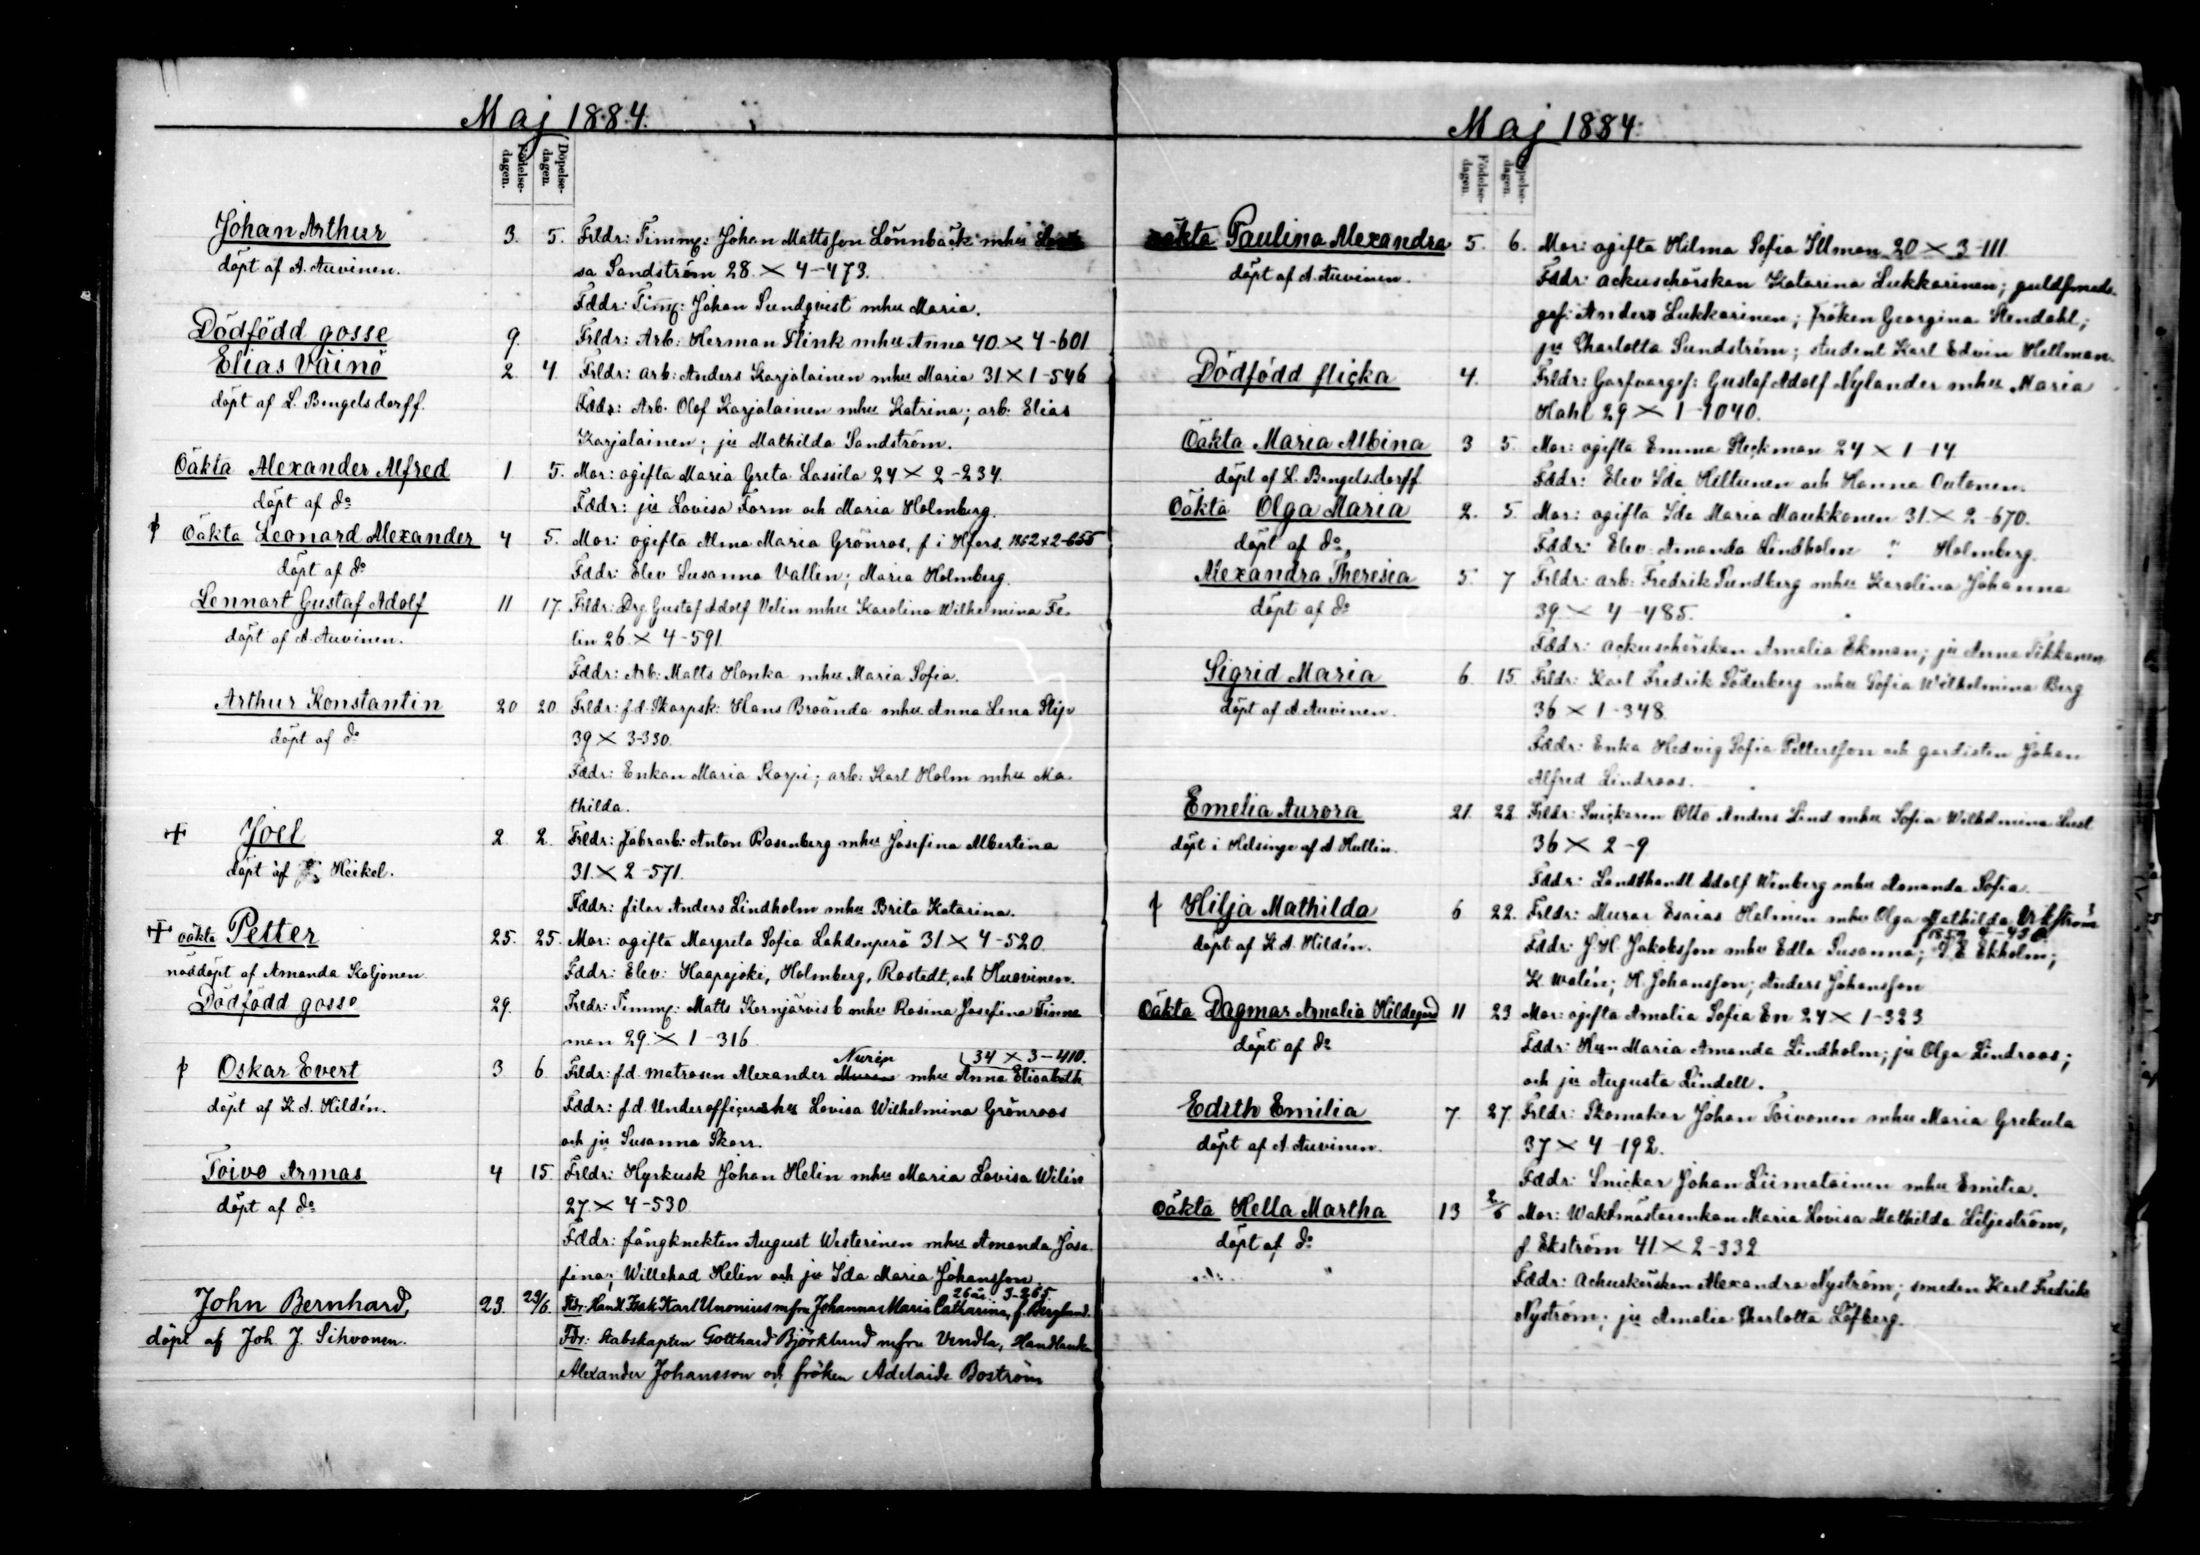 Maj 1884.
Födelse-dagen. Döpelse-dagen.
Johan Arthur 3. 5. Frldr: Timmg: Johan Mattsson Lönnbäck mhu
döpt af A. Auvinen. sa Sandström 28 × 4-473.
Fddr: Timg: Johan Sundqvist mhu Maria.
Dödfödd gosse 9. Frldr: Arb: Herman Flink mhu Anna 40 × 4-601
Elias Väinö 2. 4. Frldr: arb: Anders Karjalainen mhu Maria 31 × 1-546
döpt af L. Bengelsdorff. Fddr: Arb. Olof Karjalainen mhu Katrina; arb: Elias
Karjalainen; ju Mathilda Sandström.
Oäkta Alexander Alfred 1 5. Mor: ogifta Maria Greta Lassila 24 × 2-234.
döpt af do Fddr: ju Lovisa Form och Maria Holmberg.
Oäkta Leonard Alexander 4 5. Mor: ogifta Alma Maria Grönros, f i Hfors. 1862 × 2-655
döpt af do Fddr: Elev Susanna Vallin; Maria Holmberg.
Lennart Gustaf Adolf 11 17. Frldr: Drg. Gustaf Adolf Velin mhu Karolina Wilhelmina Fe-
döpt af A. Auvinen. lin 26 × 4-591.
Fddr: Arb: Matts Honka mhu Maria Sofia.
Arthur Konstantin 20 20 Frldr: f.d. Skarpsk: Hans Broända mhu Anna Lena
döpt af do 39 × 3-330.
Fddr: Enkan Maria Korpi; arb: Karl Holm mhu Ma-
thilda.
Joel 2. 2. Frldr: fabrarb: Anton Rosenberg mhu Josefina Albertina
döpt af Heikel. 31. × 2-571.
Fddr: filar Anders Lindholm mhu Brita Katarina.
oäkta Petter 25. 25. Mor: ogifta Margreta Sofia Lahdenperä 31 × 4-520
nöddöpt af Amanda Koljonen. Fddr: Elev: Haapajoki, Holmberg, Rostedt, och Huovinen.
Dödfödd gosse 29. Frldr: Timmg: Matts Kornjärvis b mhu Rosina Josefina Tinne
man 29. × 1-316.
Nurén (34 × 3-410.
Oskar Evert 3. 6. Frldr: f.d. matrosen Alexander mhu Anna Elisabeth
döpt af K. A. Hildén. Fddr: f.d. Underofficers hu Lovisa Wilhelmina Grönroos
och ju Susanna Skarr.
Toivo Armas 4 15. Frldr: Hyrkusk Johan Helin mhu Maria Lovisa Wilén
döpt af do 27. × 4-530
Fddr: fångknekten August Westerinen mhu Amanda Jose-
fina; Willehad Helin och ju Ida Maria Johansson.
26 år. 3-265.
John Bernhard, 23. 29/6. Fldr: Handl. Isak Karl Unonius mfru Johanna Maria Catharina, f. Berglund.
döpt af Joh. J. Sihvonen. Fdr: Stabskapten Gotthard Björklund mfru Vendla, Handlanden
Alexander Johansson och fröken Adelaide Boström
Maj 1884.
Födelse-dagen. Döpelse-dagen.
oäkta Paulina Alexandra 5. 6. Mor: ogifta Hilma Sofia Illman 20 × 3-111
döpt af A. Auvinen. Fddr: ackuschörskan Katarina Lukkarinen; guldsmeds-
gef: Anders Lukkarinen; fröken Georgina Stendahl;
ju Charlotta Sundström; student Karl Edvin Hellman.
Dödfödd flicka 4. Frldr: Garfvargef: Gustaf Adolf Nylander mhu Maria
Hahl 29 × 1-1040.
Oäkta Maria Albina 3 5. Mor: ogifta Emma Stickman 24 × 1-14
döpt af L. Bengelsdorff Fddr: Elev Ida Hiltunen och Hanna Outonen.
Oäkta Olga Maria 2. 5. Mor: ogifta Ida Maria Maukkonen 31. × 2-670.
döpt af do Fddr: Elev: Amanda Lindholm " Holmberg.
Alexandra Theresia 5. 7 Frldr: arb: Fredrik Sundberg mhu Karolina Johanna
döpt af do 39 × 4-485.
Fddr: ackuschörskan Amalia Ekman; ju Anna Tikkanen
Sigrid Maria 6. 15. Frldr: Karl Fredrik Söderberg mhu Sofia Wilhelmina Berg
döpt af A. Auvinen. 36 × 1-348.
Fddr: Enka Hedvig Sofia Pettersson och gardisten Johan
Alfred Lindroos.
Emelia Aurora 21. 22 Frldr: Snickaren Otto Anders Lind mhu Sofia Wilhelmina
döpt i Helsinge af A. Hallin. 36 × 2-9
Fddr: Landthandl Adolf Wenberg mhu Amanda Sofia.
Hilja Mathilda 6 22. Frldr: Murar Esaias Halmén mhu Olga Mathilda
döpt af K. A. Hildén. Fddr: J. H. Jakobsson mhu Edla Susanna; E Ekholm;
K. Walén; H. Johansson; Anders Johansson
Oäkta Dagmar Amalia Hildegard 11 23 Mor: ogifta Amalia Sofia En 24 × 1-323
döpt af do Fddr: Hu Maria Amanda Lindholm; ju Olga Lindroos;
och ju Augusta Lindell.
Edith Emilia 7. 27. Frldr: Skomakar Johan Toivonen mhu Maria Grekula
döpt af A. Auvinen. 37 × 4-192.
Fddr: Snickar Johan Liimatainen mhu Emilia.
Oäkta Hella Martha 13 2/6 Mor: Waktmästarenkan Maria Lovisa Mathilda Liljeström,
döpt af do f Ekström 41. × 2-332
Fddr: Ackuskörskan Alexandra Nyström; smeden Karl Fredrik
Nyström; ju Amalia Charlotta Löfberg.